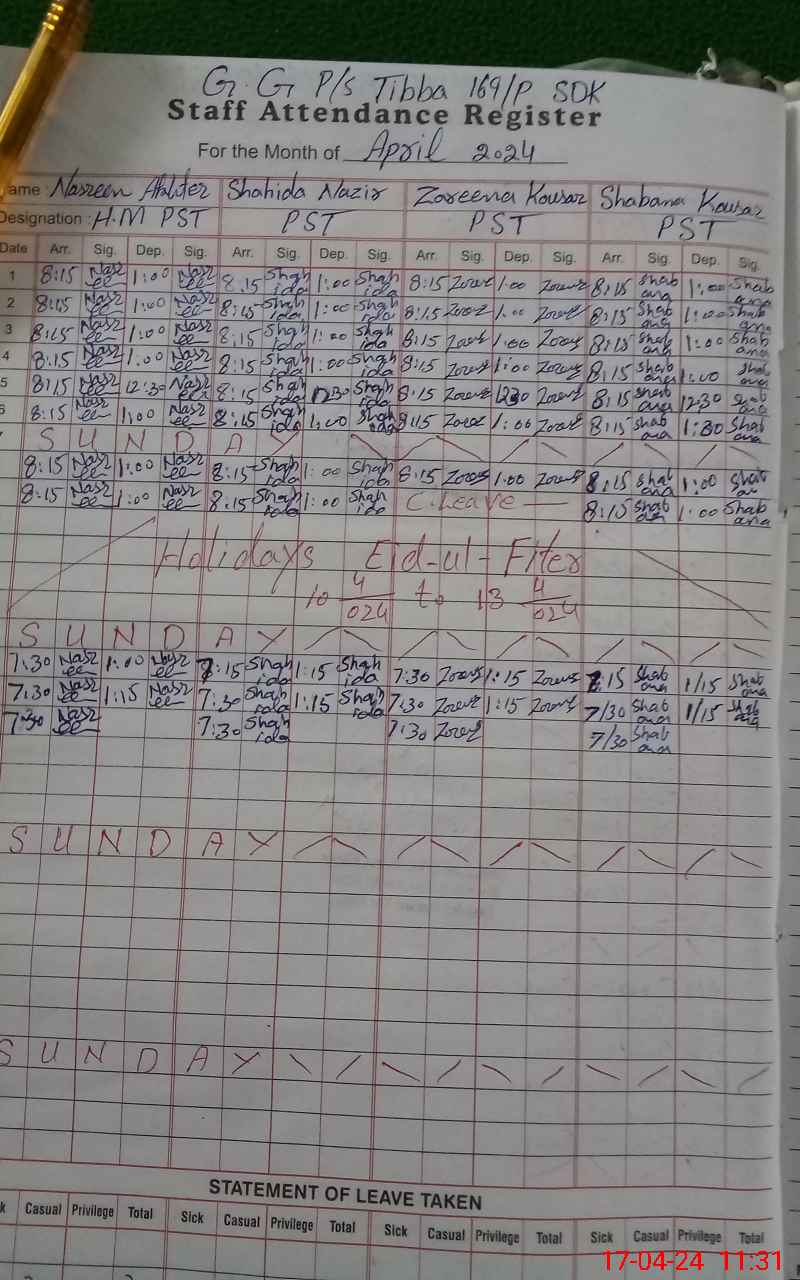 G.G P/s Tibba 169/P SDK
Staff Attendance Register
For the Month of April 2024
ame : Nasreen Akhter Shahida Nazir Zoreena Kousar Shabana Kousar
Designation : H.M PST PST PST PST
Date Arr. Sig. Dep. Sig. Arr. Sig. Dep. Sig. Arr. Sig. Dep. Sig. Arr. Sig. Dep. Sig.
1 8:15 Nasree 1:00 Nasree 8:15 Shahida 1:00 Shahida 8:15 1:00 8:15 Shabana 1:00 Shabana
2 8:15 Nasree 1:00 Nasree 8:15 Shahida 1:00 Shahida 8:15 1:00 8:15 Shabana 1:00 Shabana
3 8:15 Nasree 1:00 Nasree 8:15 Shahida 1:00 Shahida 8:15 1:00 8:15 Shabana 1:00 Shabana
4 8:15 Nasree 1:00 Nasree 8:15 Shahida 1:00 Shahida 8:15 1:00 8:15 Shabana 1:00 Shabana
5 8:15 Nasree 12:30 Nasree 8:15 Shahida 12:30 Shahida 8:15 1230 8:15 Shabana 12:30 Shabana
6 8:15 Nasree 1:00 Nasree 8:15 Shahida 1:00 Shahida 8:15 1:00 8:15 Shabana 1:30 Shabana
S U N D A Y
8:15 Nasree 1:00 Nasree 8:15 Shahida 1:00 Shahida 8:15 1:00 8:15 Shabana 1:00 Shabana
8:15 Nasree 1:00 Nasree 8:15 Shahida 1:00 Shahida C.Leave 8:15 Shabana 1:00 Shabana
Holidays Eid-ul-Fiter
10 4/024 to 13 4/024
S U N D A Y
7:30 Nasree 1:00 Nasree 7:15 Shahida 1:15 Shahida 7:30 1:15 7:15 Shabana 1/15 Shabana
7:30 Nasree 1:15 Nasree 7:30 Shahida 1:15 Shahida 7:30 1:15 7/30 Shabana 1/15 Shabana
7:30 Nasree 7:30 Shahida 7:30 7/30 Shabana
S U N D A Y
S U N D A Y
STATEMENT OF LEAVE TAKEN
k Casual Privilege Total Sick Casual Privilege Total Sick Casual Privilege Total Sick Casual Privilege Total
17-04-24 11:31